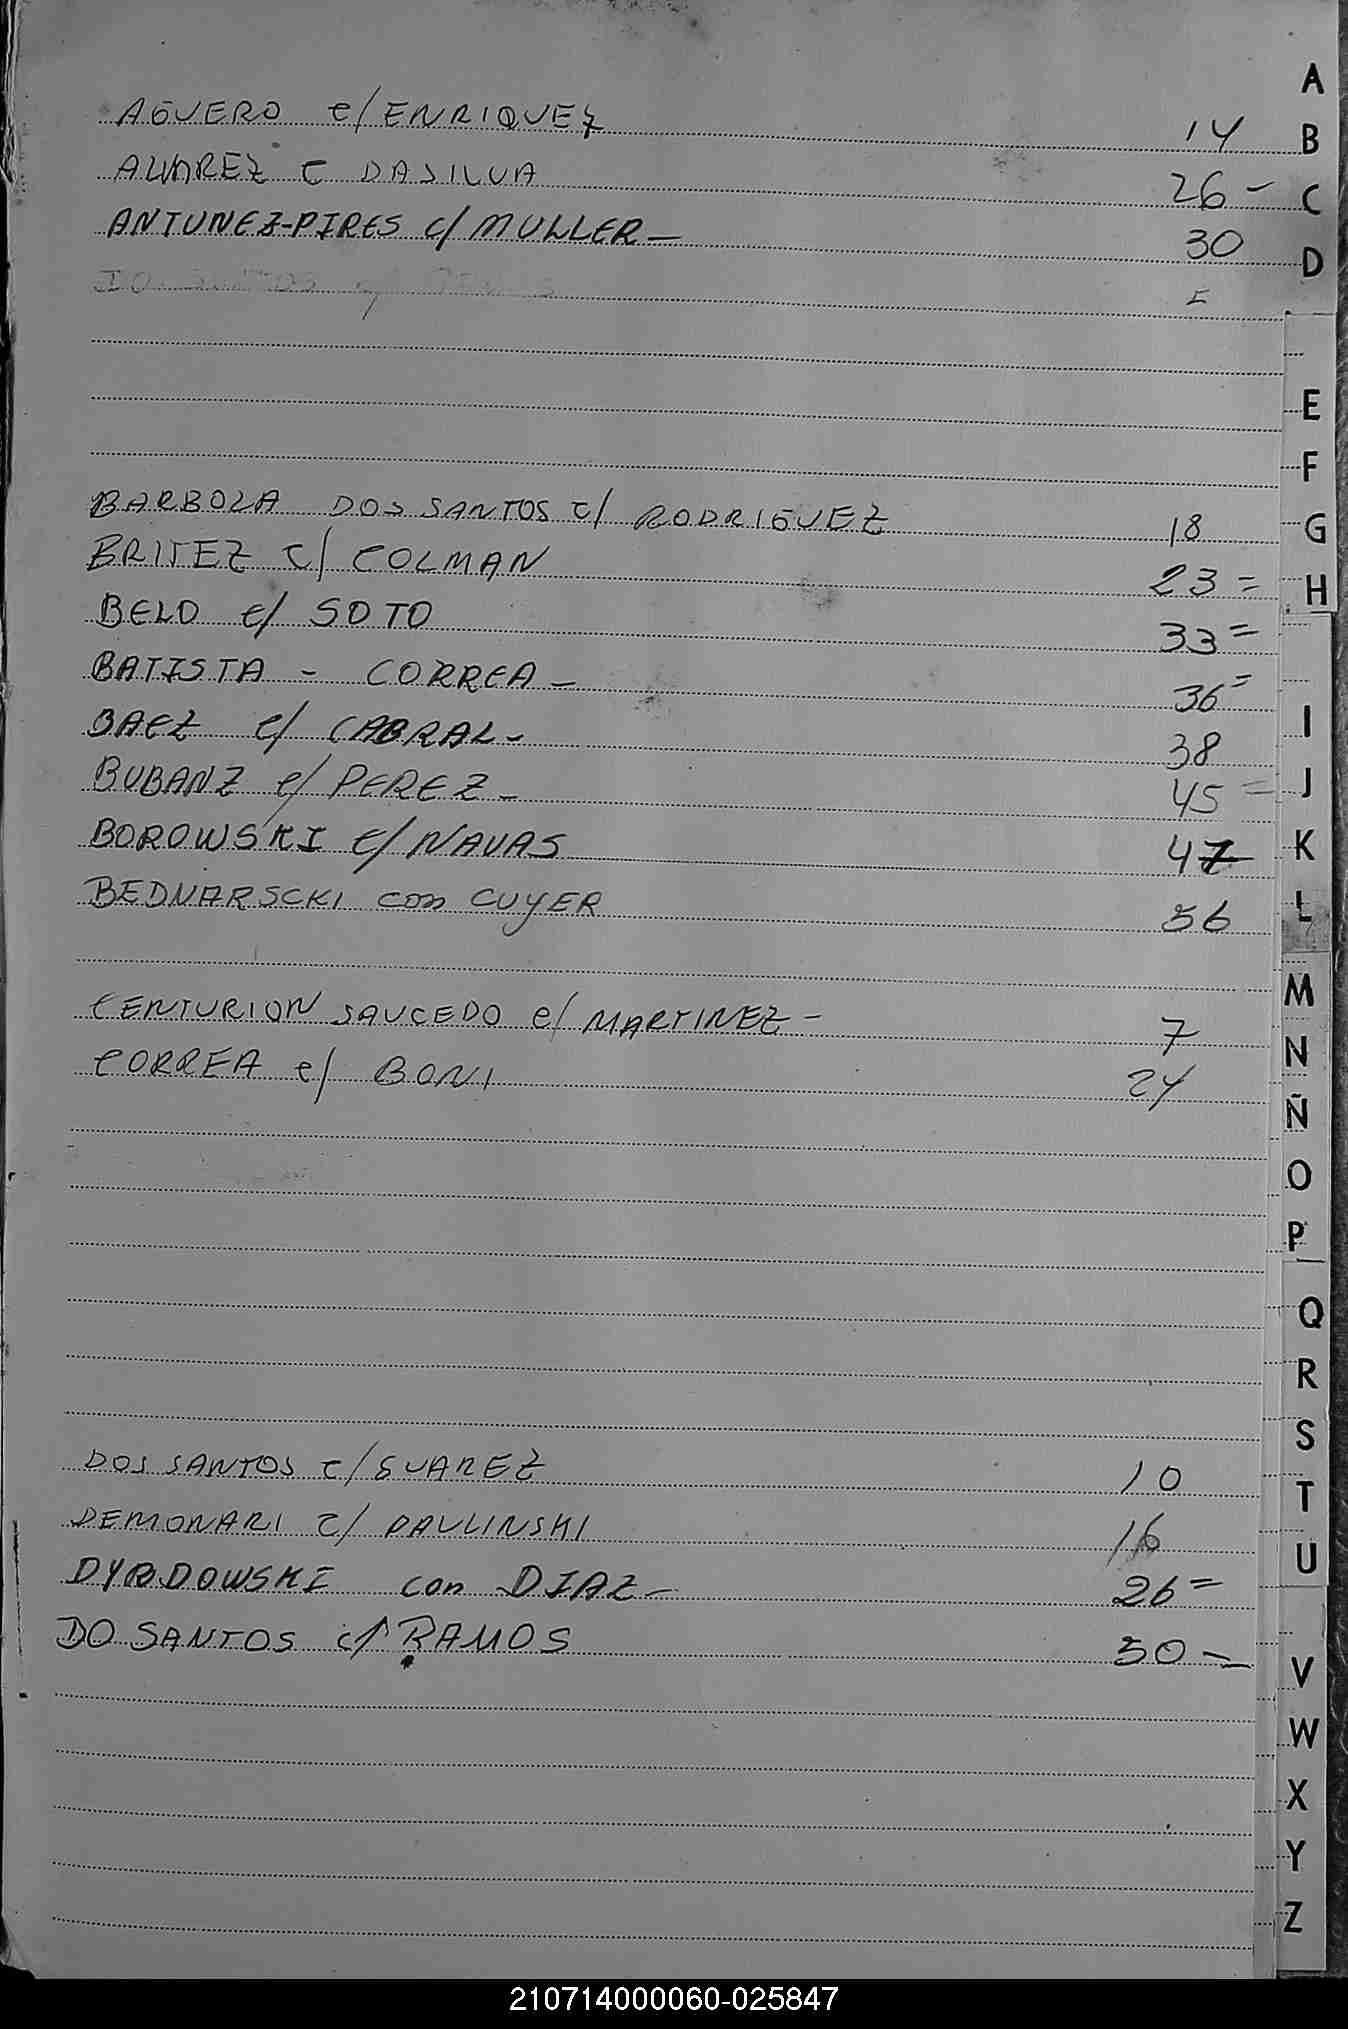 AGUERO c/ ENRIQUEZ 14
ALVAREZ C DASILVA 26 -
ANTUNEZ-PIRES c/ MULLER - 30
BARBOZA DOS SANTOS c/ RODRIGUEZ 18
BRITEZ c/ COLMAN 23 =
BELO c/ SOTO 33 =
BATISTA - CORREA - 36 =
BAEZ c/ CABRAL - 38
BUBANZ c/ PEREZ - 45 =
BOROWSKI c/ NAVAS 47
BEDNARSCKI con CUYER 56
CENTURION SAUCEDO c/ MARTINEZ - 7
CORREA c/ BONI 24
DOS SANTOS c/ SUAREZ 10
DEMONARI c/ PAULINSKI 16
DYBDOWSKI con DIAZ - 26 =
DO SANTOS c/ RAMOS 50 -
A
B
C
D
E
F
G
H
I
J
K
L
M
N
Ñ
O
P
Q
R
S
T
U
V
W
X
Y
Z
210714000060-025847